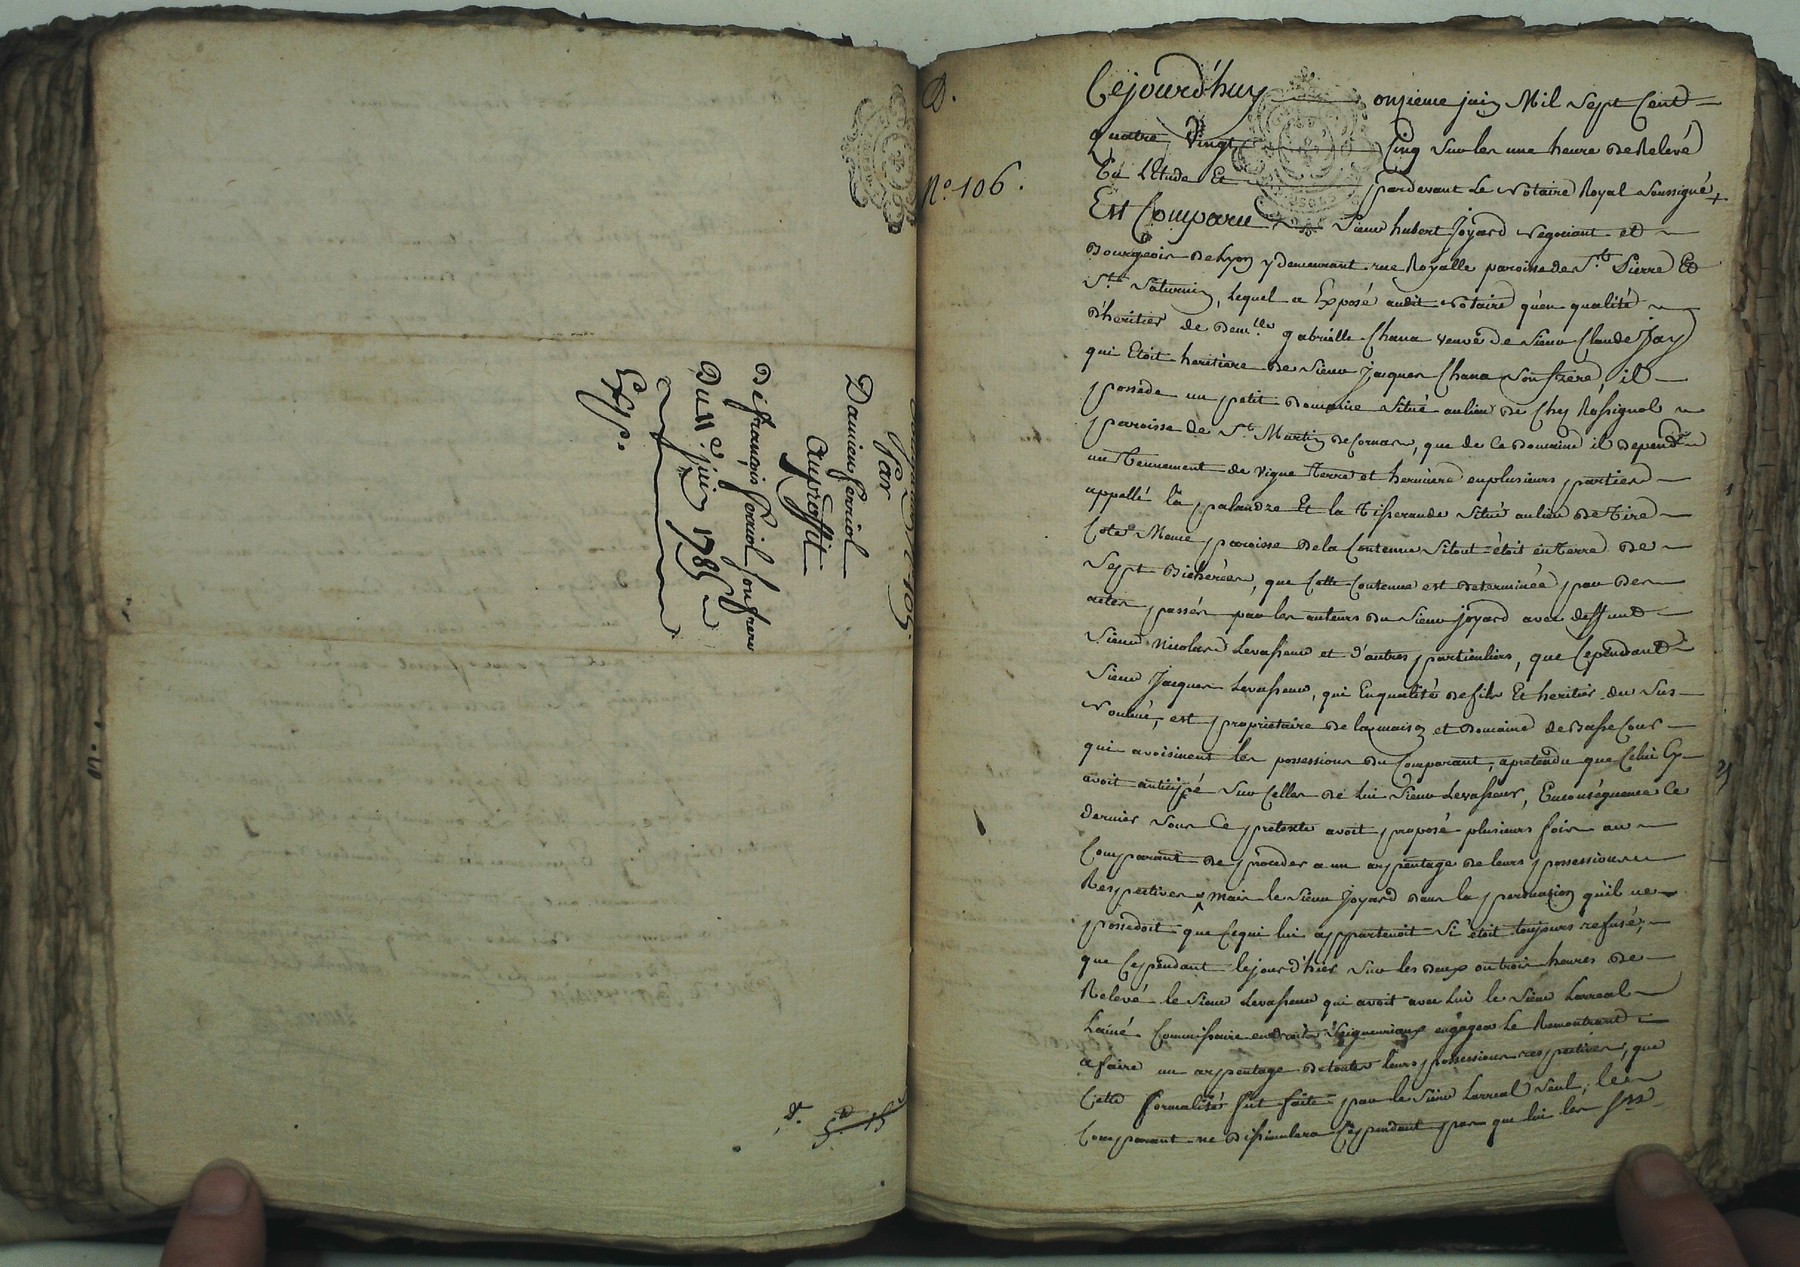 Par
Damien Ferriol
Auproffit
De françois Ferriol Son frere
Du 11e juin 1785
Exp.
D.
No. 106.
Cejourd'huy onzieme juin Mil Sept Cent
quatre Vingt Cinq Sur les une heure de Relevé
En L'Etude Et pardevant Le Notaire Royal Soussigné +
Est Comparu Sieur hubert Joyard Negociant et
Bourgeois de Lyon y demeurant rue Royalle paroisse de St. Pierre Et
St. Saturnin, lequel a Exposé audit Notaire qu'en qualité
d'heritier de Demlle gabrielle Chana veuve de Sieur Claude Jay
qui Etoit heritiere de Sieur Jacques Chana Son frere, il
possede un petit Domaine Situé au lieu de Chez Rossignol
paroisse de St. Martin de Cornas, que de Ce Domaine il depend
un Tennement de vigne Terre et hermiere en plusieurs parties
appellé la palandre Et la Tisserande Situé au lieu de Tire
Coté Meme paroisse de la Contenue Si tout étoit en Terre de
Sept Bicherées, que Cette Contenue est determinée par des
actes passés par les auteurs du Sieur joyard avec deffunt
Sieur Nicolas Levasseur et d'autres particuliers, que Cependant
Sieur Jacques Levasseur, qui En qualité de fils Et heritier du Sus
Nommé, est proprietaire de la maison et Domaine de Basse Cour
qui avoisinent les possessions du Comparant, a pretendu que Celui Cy
avoit anticipé Sur Celles de lui Sieur Levasseur, En conséquence Ce
dernier Sous Ce pretexte avoit proposé plusieurs fois au
Comparant de proceder a un arpentage de leurs possessions
Respectives mais le Sieur Joyard dans la persuazion qu'il ne
possedoit que Ce qui lui appartenoit S'i étoit toujours refusé,
que Cependant le jour d'hier Sur les deux ou trois heures de
Relevé le Sieur Levasseur qui avoit avec Lui le Sieur Larreal
L'ainé Commissaire en droits Seigneuriaux engagea Le Remontrant
a faire un arpentage de toutes leurs possessions respectives, que
Cette formalité fut faite par le Sieur Larreal Seul, le
Comparant ne dissimulera Cependant pas que lui les